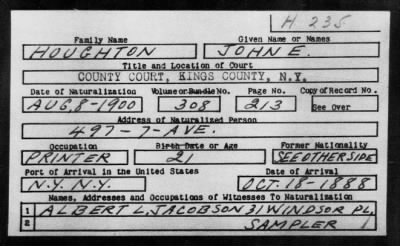 H 235
Family Name Given Name or Names
HOUGHTON JOHN E.
Title and Location of Court
COUNTY COURT, KINGS COUNTY, N.Y.
Date of Naturalization Volume or Bundle No. Page No. Copy of Record No.
AUG, 8-1900 308 213 See Over
Address of Naturalized Person
497-7-AVE.
Occupation Birth Date or Age Former Nationality
PRINTER 21 SEE OTHER SIDE
Port of Arrival in the United States Date of Arrival
N.Y. N.Y. OCT. 18-1888
Names, Addresses and Occupations of Witnesses To Naturalization
1 ALBERT L. JACOBSON 31 WINDSOR PL.
2 SAMPLER